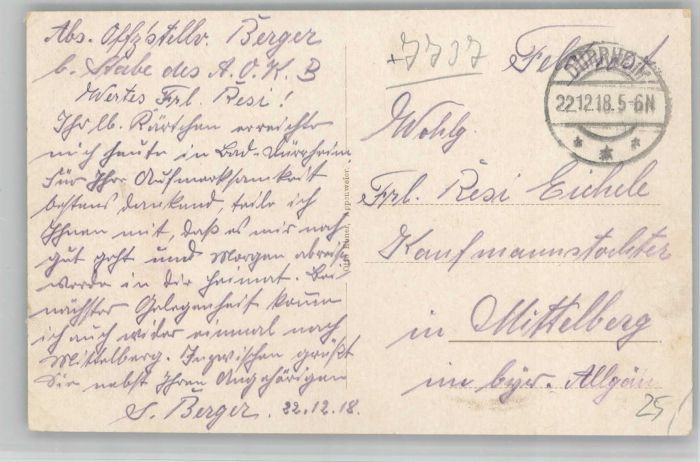 Abs. Offz'stellv. Berger
b. Stabe des A.O.K. B
Wertes Frl. Resi!
Ihr lb. Kärtchen erreichte
mich heute in Bad-Dürrheim,
für Ihre Aufmerksamkeit
bestens dankend, teile ich
Ihnen mit, daß es mir noch
gut geht und Morgen abreisen
werde in die Heimat. Bei
nächster Gelegenheit komme
ich auch wider einmal nach
Mittelberg. Inzwischen grüßt
Sie nebst Ihren Angehörigen
S. Berger. 22.12.18.
Appenweier
+7737
DÜRRHEIM
22.12.18.5-6N
* * *
Wohlg.
Frl. Resi Eichele
Kaufmannstochter
in Mittelberg
im byr. Allgäu
25